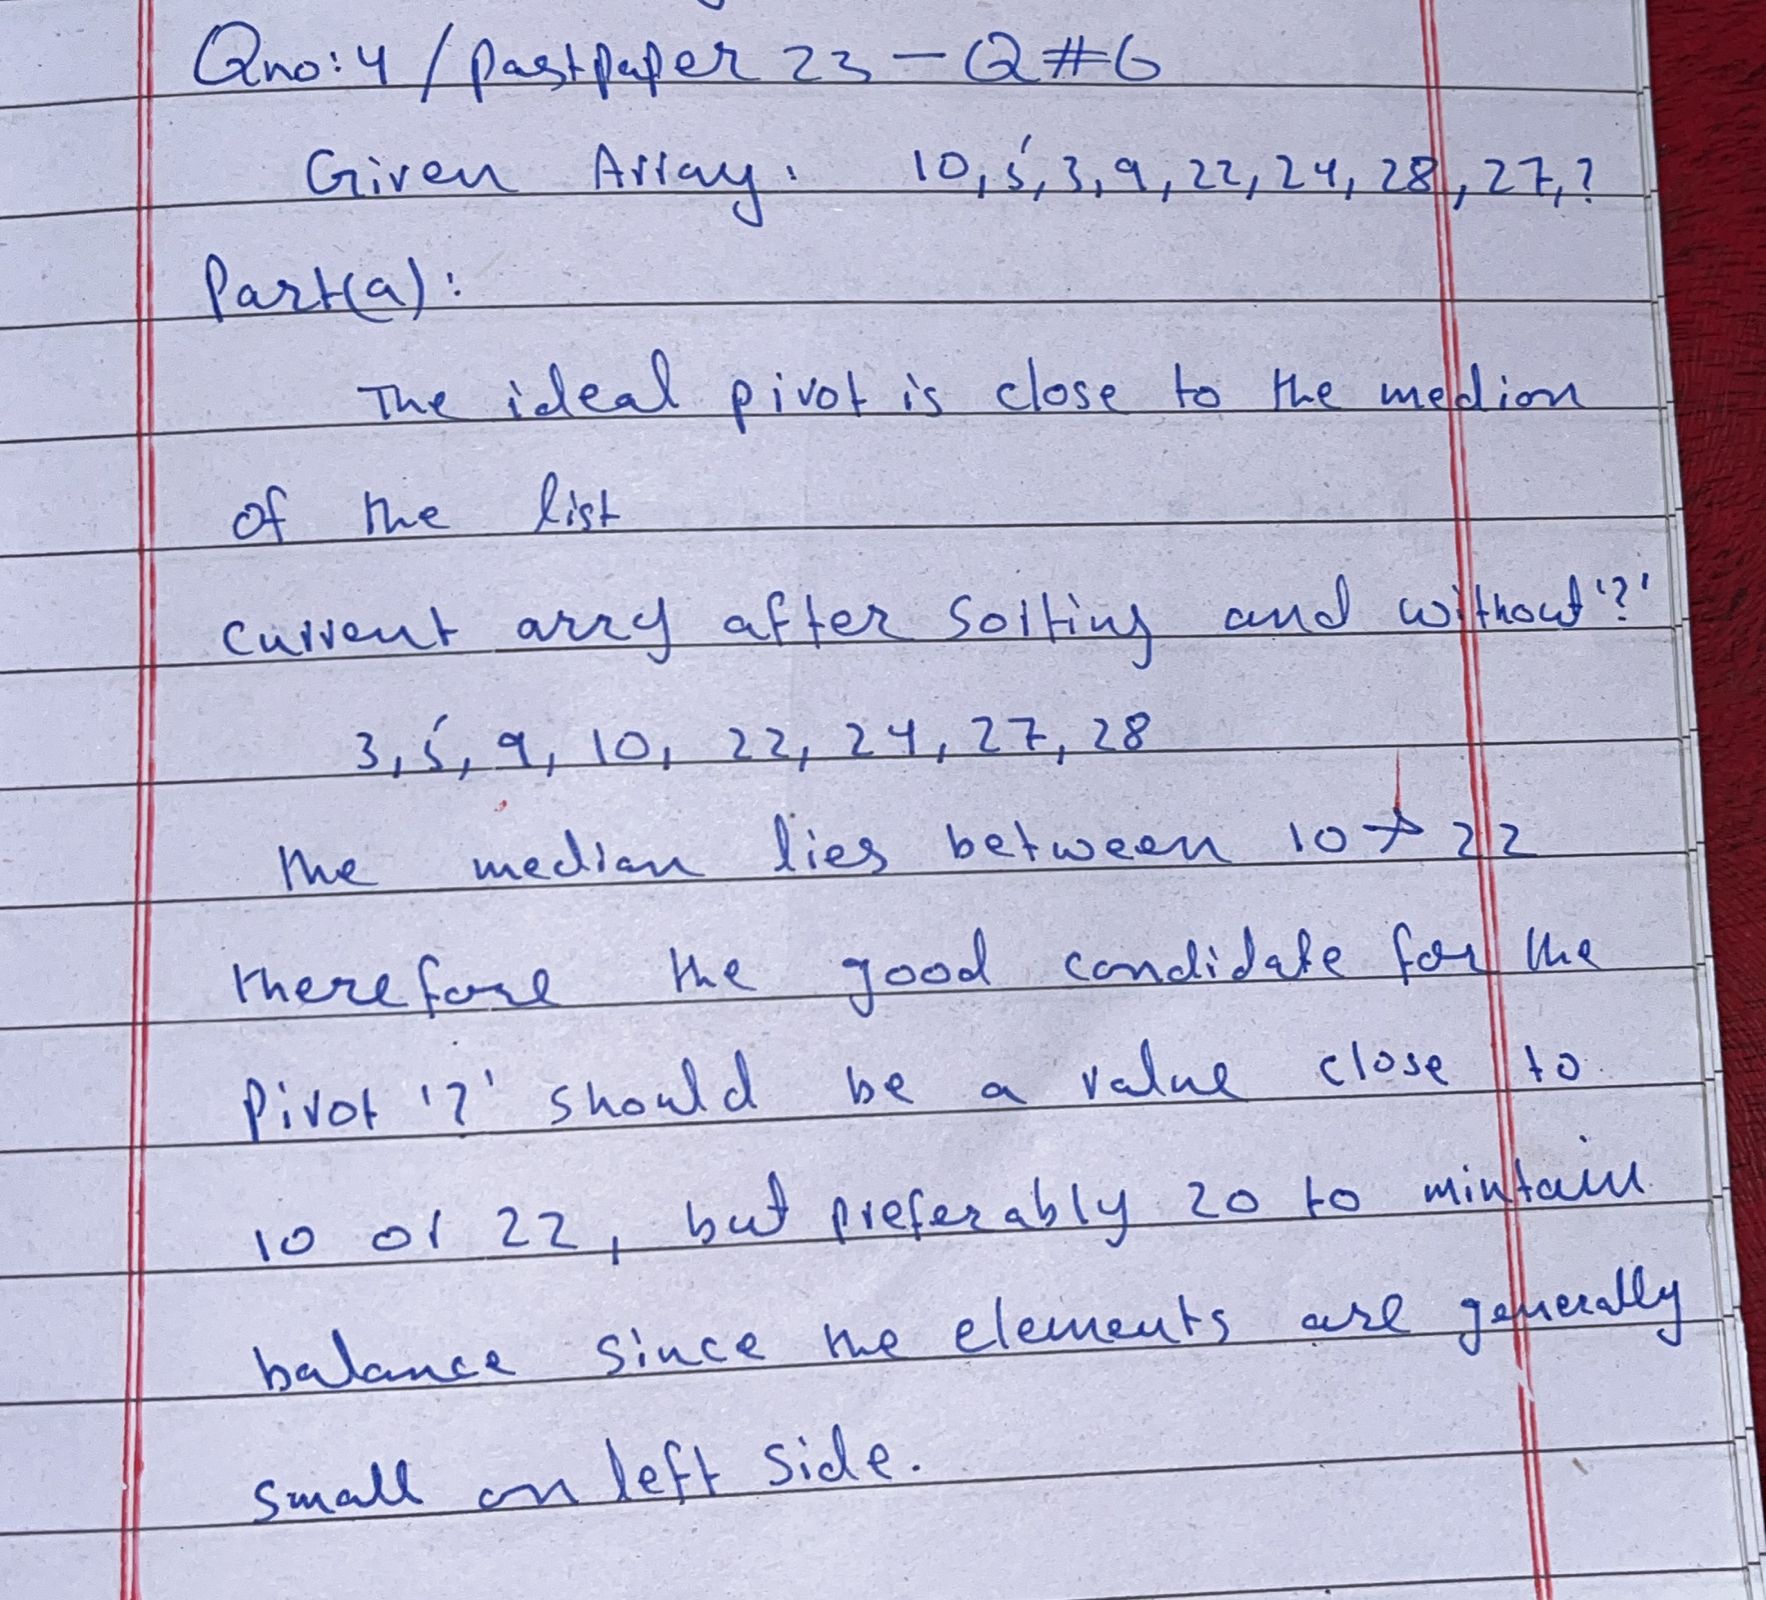 Qno:4 / Pastpaper 23 - Q#6
Given Array: 10, 5, 3, 9, 22, 24, 28, 27, ?
Part(a):
The ideal pivot is close to the medion
of the list
current arry after sorting and without '?'
3, 5, 9, 10, 22, 24, 27, 28
the median lies between 10 → 22
therefore the good candidate for the
Pivot '?' should be a value close to
10 or 22, but preferably 20 to mintain
balance since the elements are generally
small on left side.